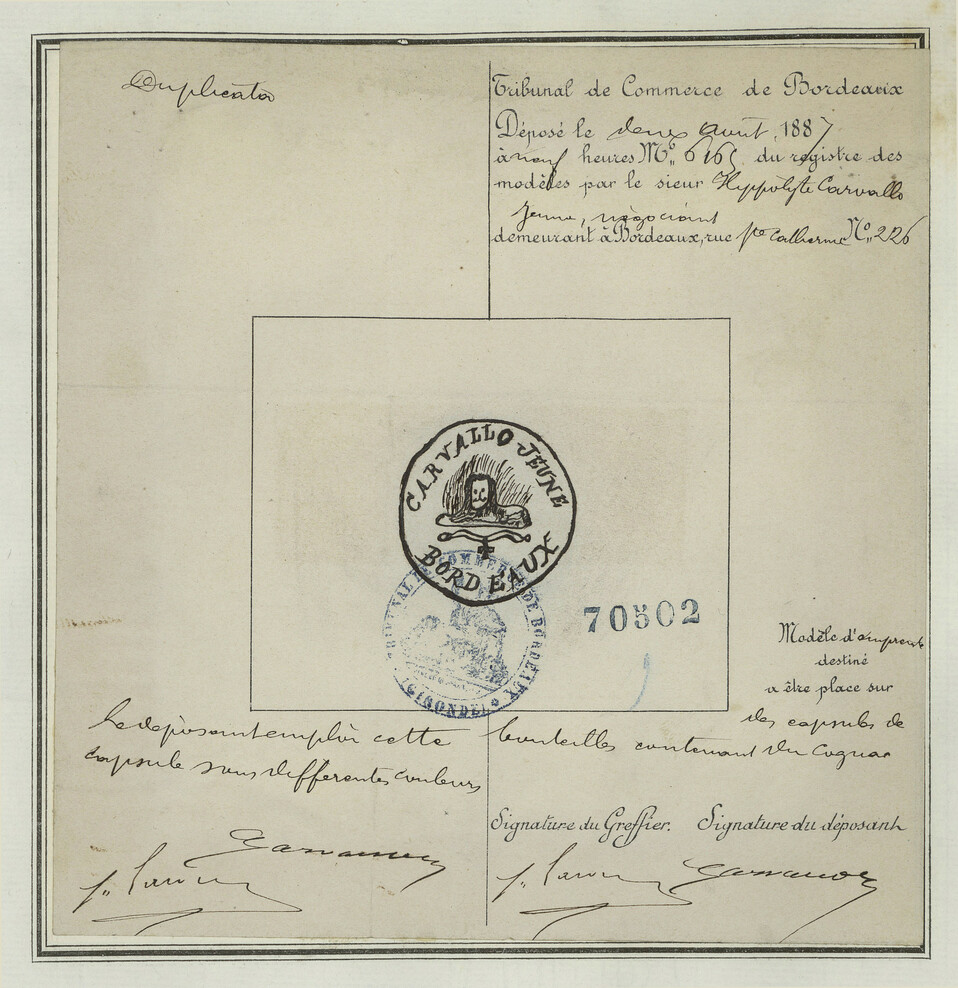 Duplicata
Tribunal de Commerce de Bordeaux
Déposé le deux Août 1887
à neuf heures Nº 6165 du registre des
modèles par le sieur Hyppolyte Carvallo
Jeune, négociant
demeurant à Bordeaux, rue Ste Catherine Nº 226
CARVALLO JEUNE
BORDEAUX
TRIBUNAL DE COMMERCE DE BORDEAUX
(GIRONDE)
70502
Modèle d'empreinte
destiné
a être place sur
des capsules de
bouteilles contenant du Cognac
Le déposant emploie cette
capsule sous differentes couleurs
Signature du Greffier. Signature du déposant